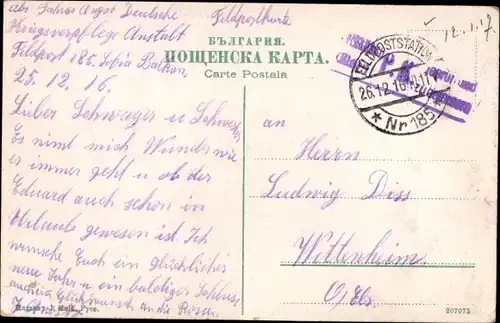 Abs Johos August Deutsche
Feldpostkarte
Kriegsverpflege Anstalt
Feldpost 185. Sofia Balkan
25.12.16.
12.1.17.
БЪЛГАРИЯ.
ПОЩЕНСКА КАРТА.
Carte Postala
FELDPOSTSTATION
26.12.16
* Nr 185 *
Lieber Schwager u Schwest
Es nimt mich Wunder wie
es immer geht u ob der
Eduard auch schon in
Urlaube gewesen ist. Ich
wünsche Euch ein glückliches
neue Jahr u ein baldiger Schluss
auch ein Glückwunsch an die Rosa
an
Herrn
Ludwig Diss
Wittenheim
O/Els.
207075